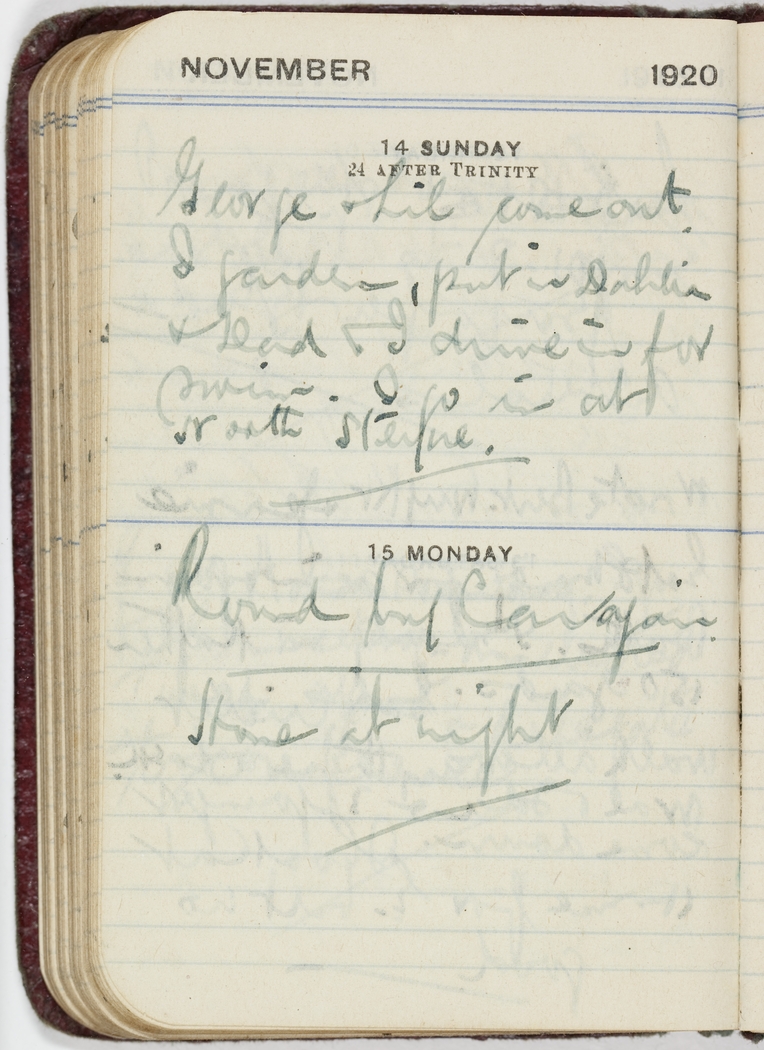 NOVEMBER 1920
14 SUNDAY
24 AFTER TRINITY
George & Lil come out.
I garden, put in Dahlia
& Dad & I drive in for
swim. I go in at
North Steyne.
15 MONDAY
Round by again
Home at night